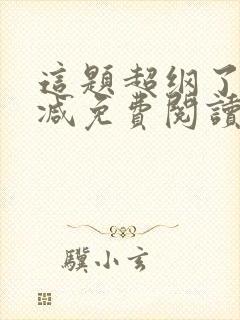 這題超纲了
减免費閱讀
驥小玄